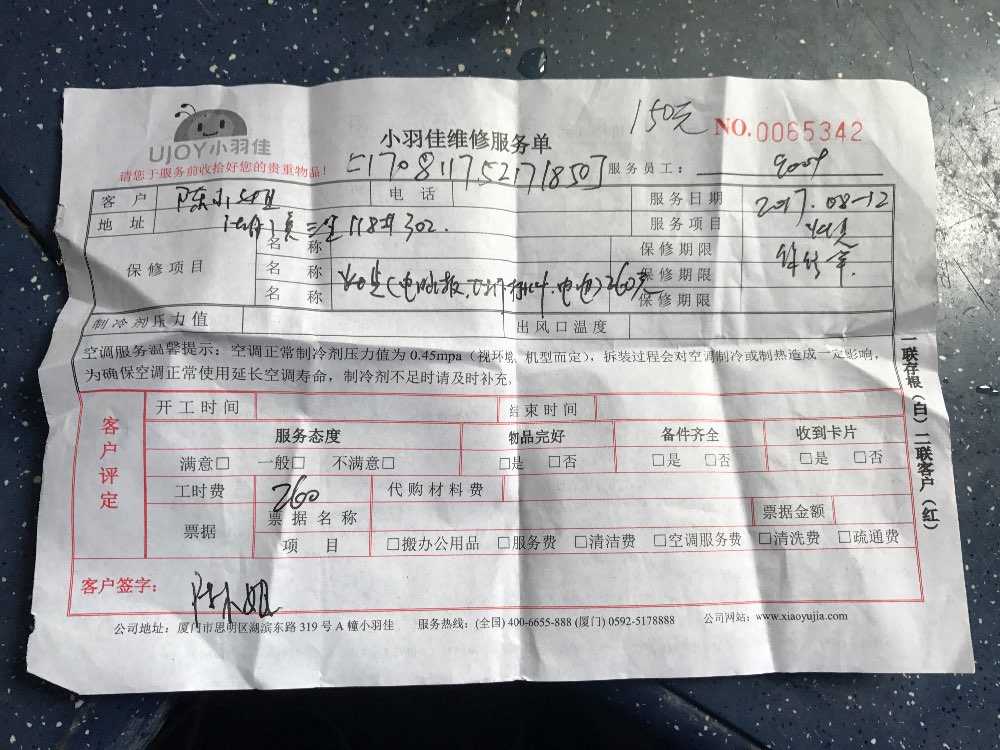 UJOY小羽佳
小羽佳维修服务单
150元
NO.0065342
请您于服务前收拾好您的贵重物品!
服务员工:
客户 陈小姐 电话 服务日期 2017.08-12
地址 118#302. 服务项目
保修项目 名称 保修期限
名称 260元 保修期限
名称 保修期限
制冷剂压力值 出风口温度
空调服务温馨提示:空调正常制冷剂压力值为 0.45mpa(视环境、机型而定),拆装过程会对空调制冷或制热造成一定影响,
为确保空调正常使用延长空调寿命,制冷剂不足时请及时补充。
一联存根(白)二联客户(红)
客户评定
开工时间 结束时间
服务态度 物品完好 备件齐全 收到卡片
满意□ 一般□ 不满意□ □是 □否 □是 □否 □是 □否
工时费 260 代购材料费
票据 票据名称 票据金额
项目 □搬办公用品 □服务费 □清洁费 □空调服务费 □清洗费 □疏通费
客户签字: 陈小姐
公司地址:厦门市思明区湖滨东路 319 号 A 幢小羽佳 服务热线:(全国) 400-6655-888 (厦门) 0592-5178888 公司网站:www.xiaoyujia.com